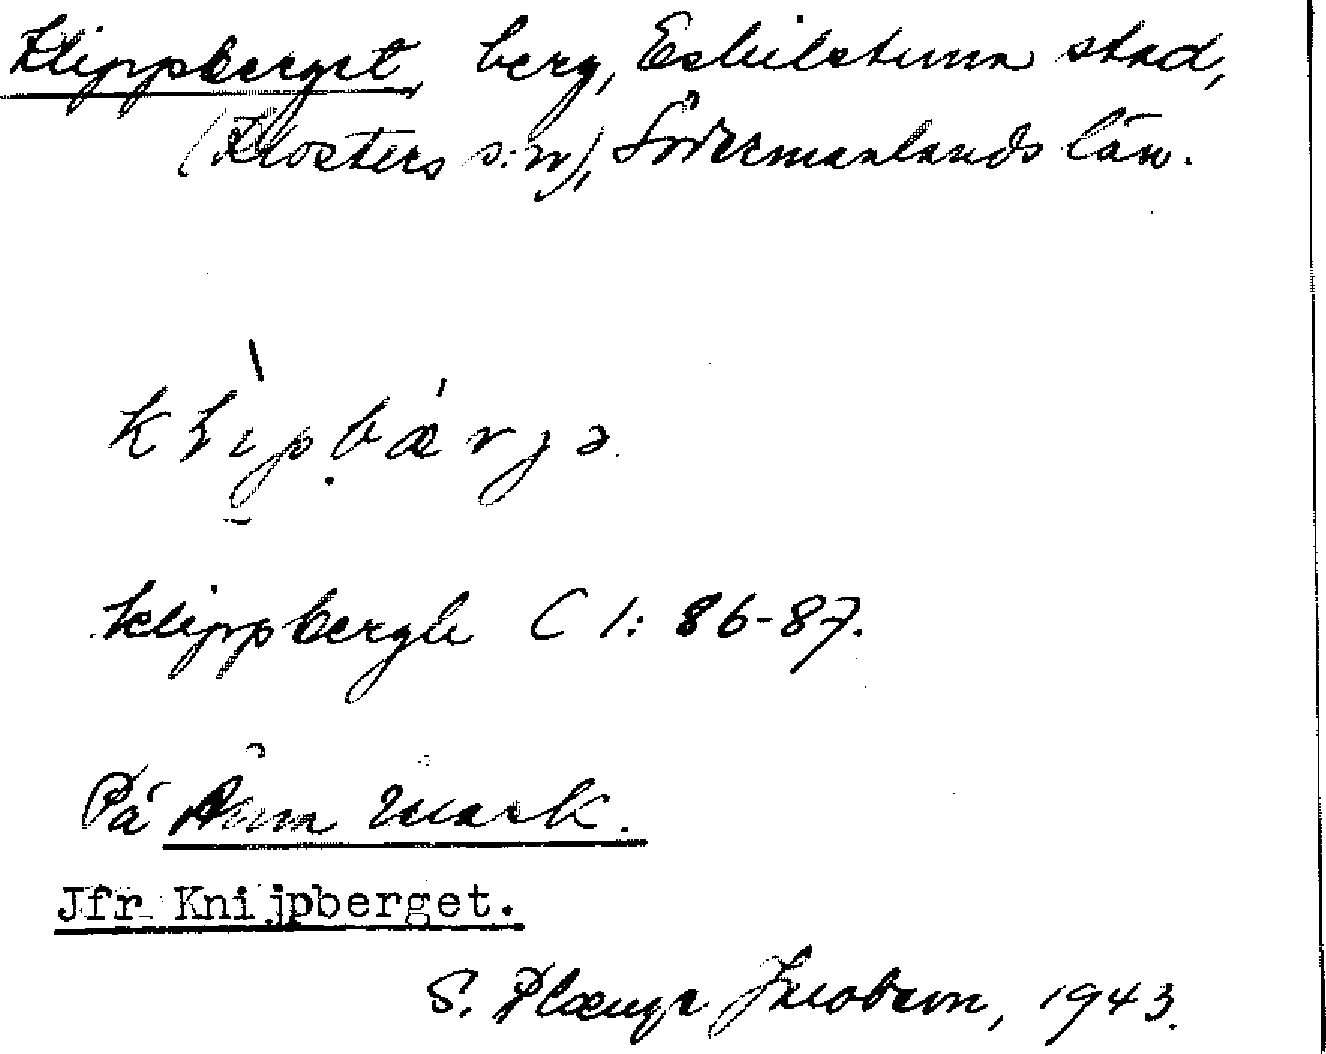 Klippberget, berg, Eskilstuna stad,
(Klosters s:n), Södermanlands län.
Klippbergle C 1: 86-87.
På mark.
Jfr Knijpberget.
S. Plænge Jacobson, 1943.